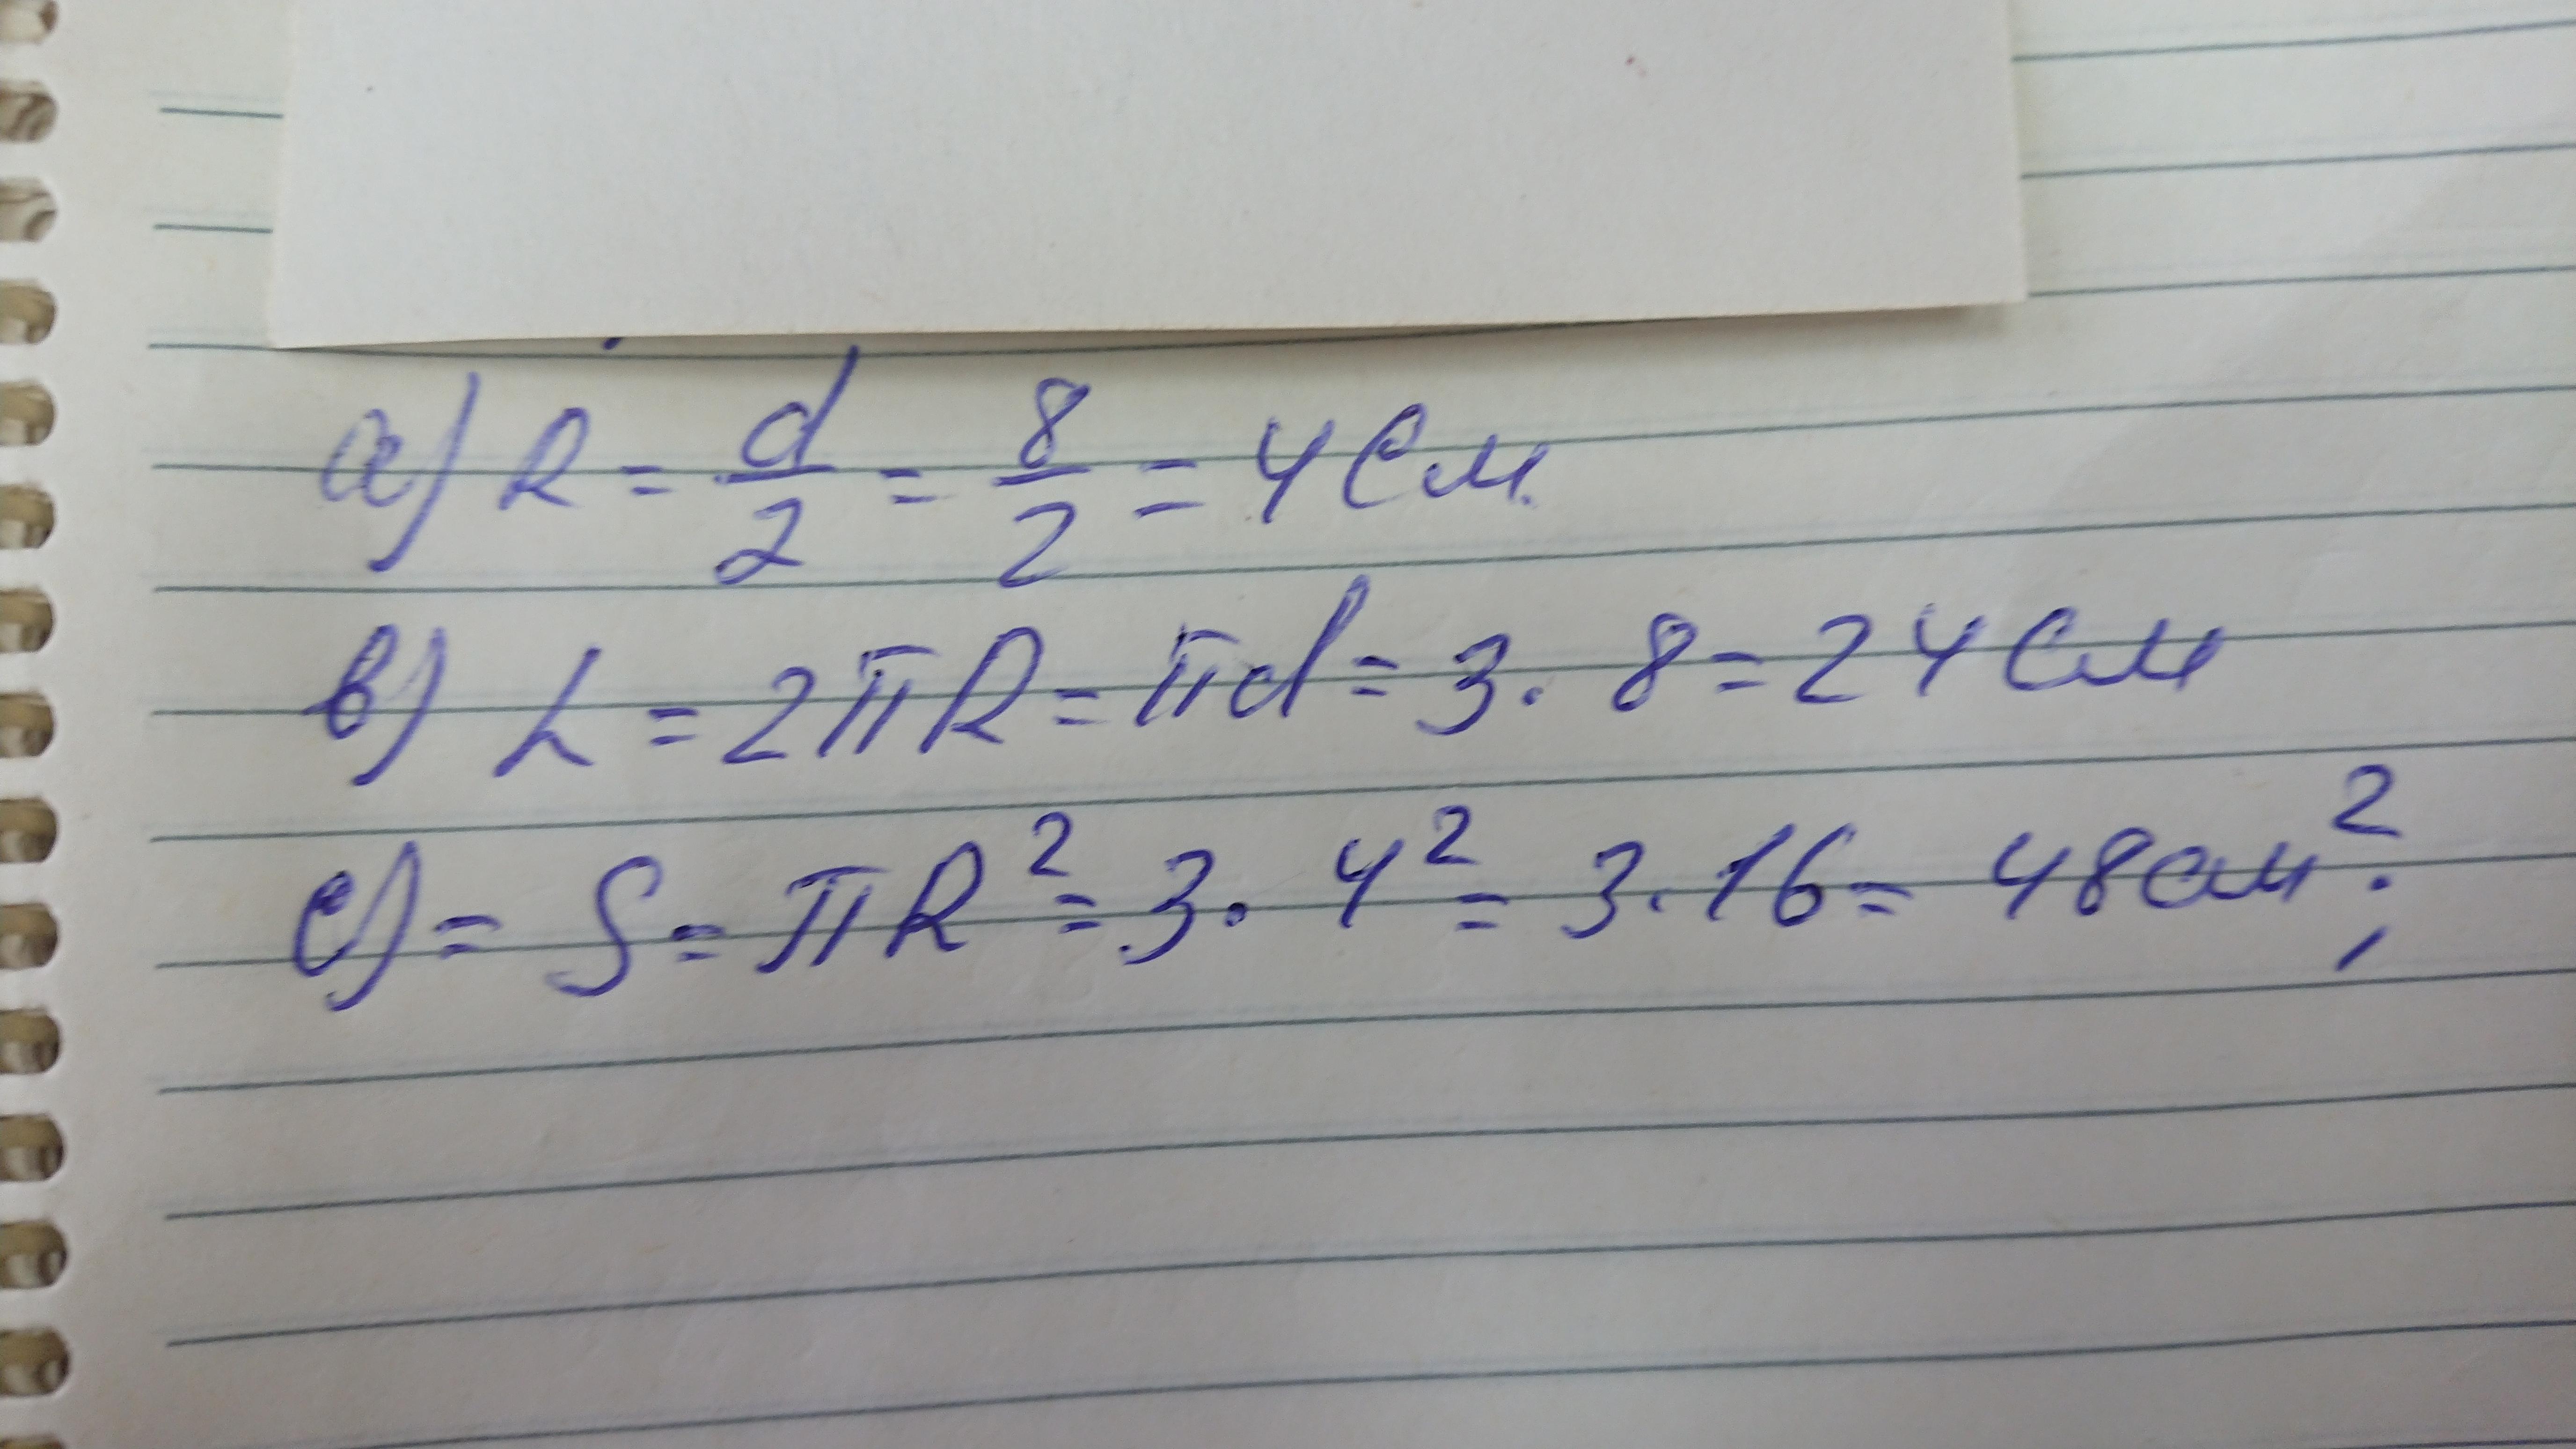 а) R = d/2 = 8/2 = 4 см.
в) L = 2πR = πd = 3 · 8 = 24 см
с) = S = πR² = 3 · 4² = 3 · 16 = 48 см²;